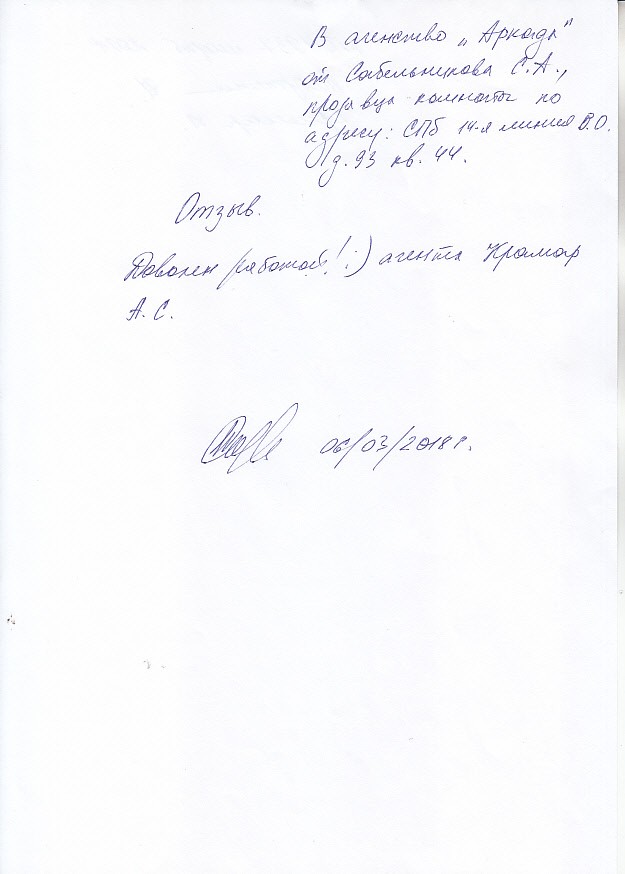 В агенство „Аркада"
от Сабельникова С.А.,
продавца комнаты по
адресу: СПб 14-я линия В.О.
д. 93 кв. 44.
Отзыв.
Доволен работой! :) агента Крамар
А.С.
06/03/2018 г.